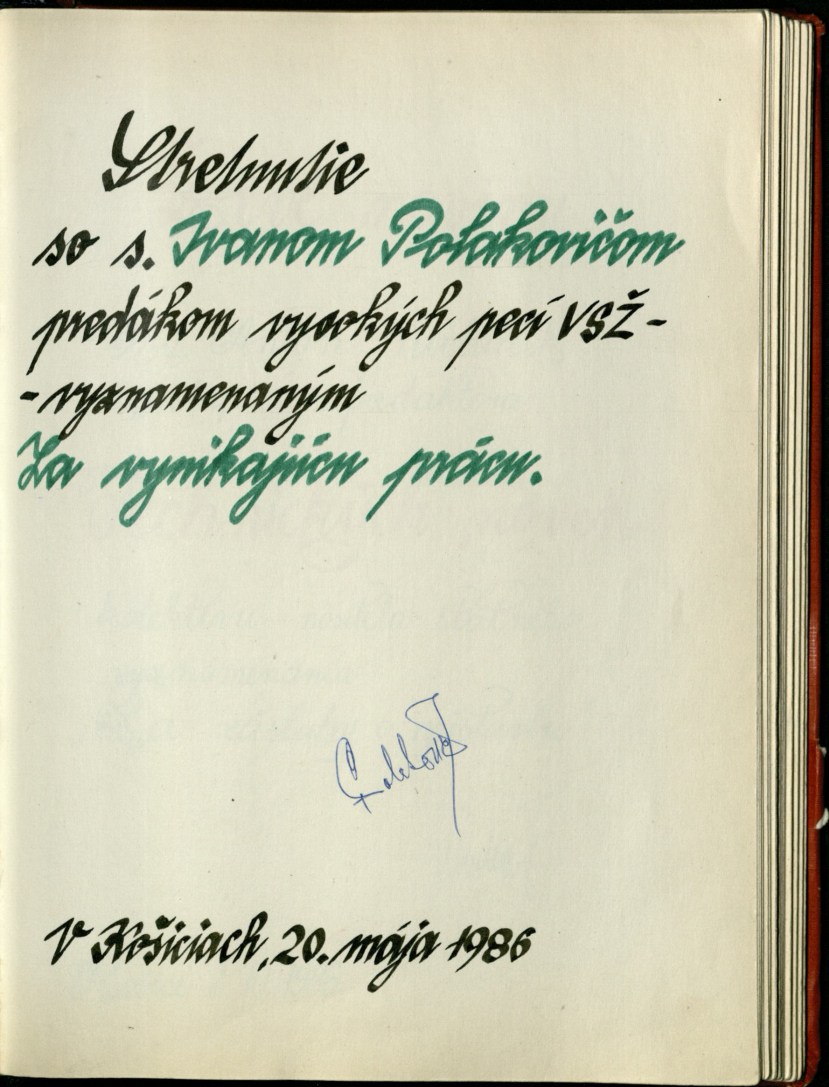 Stretnutie
so s. Ivanom Polakovičom
predákom vysokých pecí VSŽ -
- vyznamenaným
Za vynikajúcu prácu.
V Košiciach, 20. mája 1986